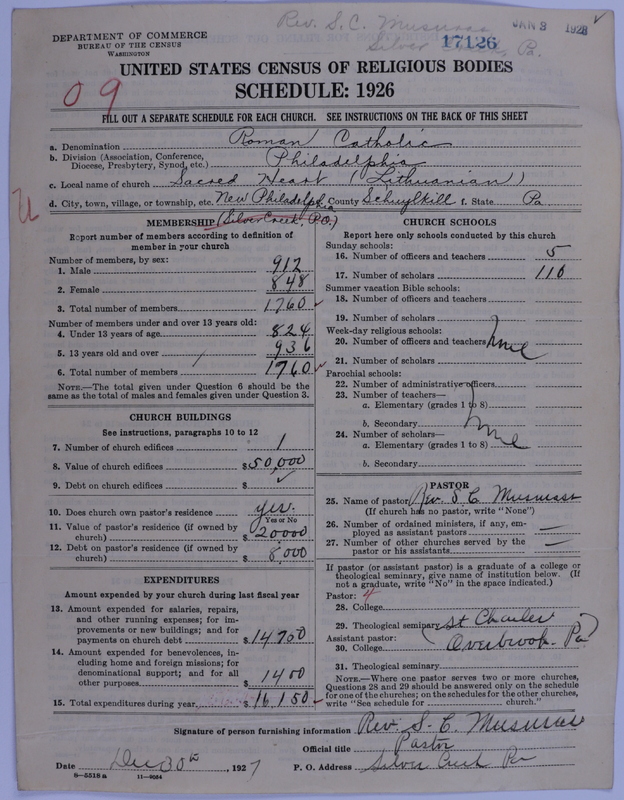 DEPARTMENT OF COMMERCE
BUREAU OF THE CENSUS
WASHINGTON
Rev. S. C.
Silver Pa.
17126
JAN 3 1928
UNITED STATES CENSUS OF RELIGIOUS BODIES
SCHEDULE: 1926
09
FILL OUT A SEPARATE SCHEDULE FOR EACH CHURCH. SEE INSTRUCTIONS ON THE BACK OF THIS SHEET
a. Denomination Roman Catholic
b. Division (Association, Conference, Diocese, Presbytery, Synod, etc.) Philadelphia
c. Local name of church Sacred Heart (Lithuanian)
d. City, town, village, or township, etc. New Philadelphia County Schuylkill f. State Pa
(Silver Creek, P.O.)
MEMBERSHIP
Report number of members according to definition of
member in your church
Number of members, by sex:
1. Male 912
2. Female 848
3. Total number of members 1760
Number of members under and over 13 years old:
4. Under 13 years of age 824
5. 13 years old and over 936
6. Total number of members 1760
NOTE.—The total given under Question 6 should be the
same as the total of males and females given under Question 3.
CHURCH BUILDINGS
See instructions, paragraphs 10 to 12
7. Number of church edifices 1
8. Value of church edifices $50,000
9. Debt on church edifices $
10. Does church own pastor's residence yes.
Yes or No
11. Value of pastor's residence (if owned by
church) $20000
12. Debt on pastor's residence (if owned by
church) $8,000
EXPENDITURES
Amount expended by your church during last fiscal year
13. Amount expended for salaries, repairs,
and other running expenses; for im-
provements or new buildings; and for
payments on church debt $14700
14. Amount expended for benevolences, in-
cluding home and foreign missions; for
denominational support; and for all
other purposes $1400
15. Total expenditures during year $16,150
CHURCH SCHOOLS
Report here only schools conducted by this church
Sunday schools:
16. Number of officers and teachers 5
17. Number of scholars 110
Summer vacation Bible schools:
18. Number of officers and teachers
19. Number of scholars
Week-day religious schools:
20. Number of officers and teachers none
21. Number of scholars
Parochial schools:
22. Number of administrative officers
23. Number of teachers—
a. Elementary (grades 1 to 8)
b. Secondary none
24. Number of scholars—
a. Elementary (grades 1 to 8)
b. Secondary
PASTOR
25. Name of pastor Rev. S. C.
(If church has no pastor, write "None")
26. Number of ordained ministers, if any, em-
ployed as assistant pastors —
27. Number of other churches served by the
pastor or his assistants —
If pastor (or assistant pastor) is a graduate of a college or
theological seminary, give name of institution below. (If
not a graduate, write "No" in the space indicated.)
Pastor: 4
28. College
29. Theological seminary St Charles
Assistant pastor:
30. College Overbrook - Pa
31. Theological seminary
NOTE.—Where one pastor serves two or more churches,
Questions 28 and 29 should be answered only on the schedule
for one of the churches; on the schedules for the other churches,
write "See schedule for church."
Signature of person furnishing information Rev. S. C.
Official title Pastor
Date Dec 30th, 1927 P. O. Address Silver Creek Pa
8—5518 a 11—9084